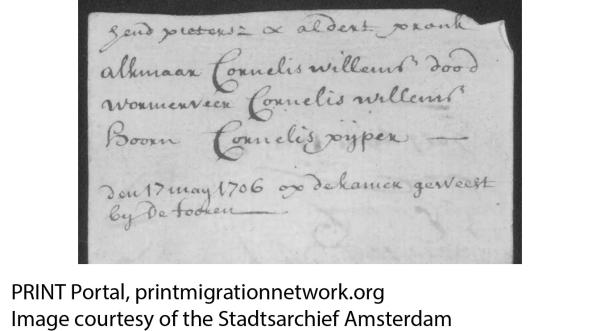 hend pietersz & aldert pronk
alkmaar Cornelis willems dood
wormerveer Cornelis willems
Hoorn Cornelis pijper —
den 17 may 1706 op de kamer geweest
by De tooren —
PRINT Portal, printmigrationnetwork.org
Image courtesy of the Stadtsarchief Amsterdam